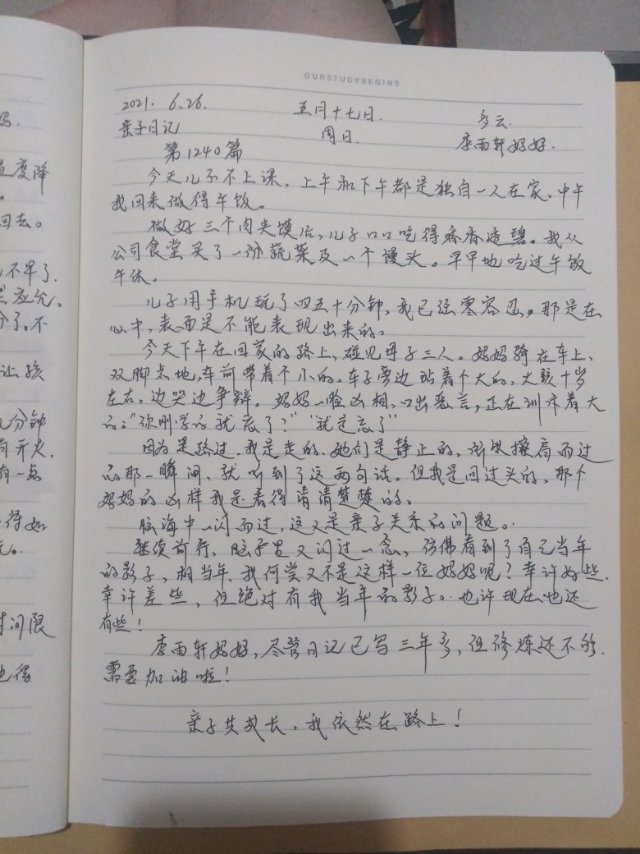 OURSTUDYBEGINS
2021. 6.26. 五月十七日. 多云.
亲子日记 周日. 李雨轩妈妈.
第1240篇
今天儿子不上课，上午和下午都是独自一人在家。中午
我回来做得午饭。
做好三个肉夹馍后，儿子口口吃得喷香。我从
公司食堂买了一份蔬菜及一个馒头。早早地吃过午饭
午休。
儿子用手机玩了四五十分钟，我已经零容忍。那是在
心中，表面是不能表现出来的。
今天下午在回家的路上，碰见母子三人。妈妈骑在车上、
双脚点地，车前带着个小的。车子旁边站着个大的，大致十岁
左右，边哭边争辩。妈妈一脸凶相，口出恶言，正在训斥着大
的："你刚学的就忘了？""就是忘了"
因为是路过，我是走的，她们是静止的，所以擦肩而过
的那一瞬间，就听到了这两句话。但我是回过头的，那个
妈妈的凶样我是看得清清楚楚的。
脑海中一闪而过，这又是亲子关系的问题。
继续前行，脑子里又闪过一念，仿佛看到了自己当年
的影子，想当年，我何尝又不是这样一位妈妈呢？幸许好些，
幸许差些，但绝对有我当年的影子。也许现在也还
有些！
李雨轩妈妈，尽管日记已写三年多，但修炼还不够.
需要加油啦！
亲子共成长，我依然在路上！
妈.
度降
回去。
不早了.
应允。
分了，不
让孩
九分钟
有开火.
有一点
得如
时间限
也得